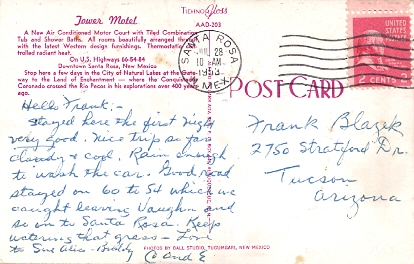 Tower Motel
A New Air Conditioned Motor Court with Tiled Combination
Tub and Shower Baths. All rooms beautifully arranged
with the latest Western design furnishings. Thermostatically con-
trolled radiant heat.
On U.S. Highways 66-54-84
Downtown Santa Rosa, New Mexico
Stop here a few days in the City of Natural Lakes at the Gate-
way to the Land of Enchantment — where the Conquistador
Coronado crossed the Rio Pecos in his explorations over 400 years
ago.
TICHNOR Gloss
AAD-203
SANTA ROSA
28
10 AM
1953
N. MEX.
UNITED STATES
2 CENTS 2
POST CARD
Hello Frank:-
Stayed here the first night
very good. Nice trip so far
cloudy & cool. Rain enough
to wash the car. Good road
stayed on 60 to 54 which we
caught leaving Vaughn and
so on to Santa Rosa. Keep
watering that grass - Love
to Sue Alice - Buddy
C and E
Frank Blazek
2750 Stratford Dr.
Tucson
Arizona
PHOTO BY BALL STUDIO, TUCUMCARI, NEW MEXICO